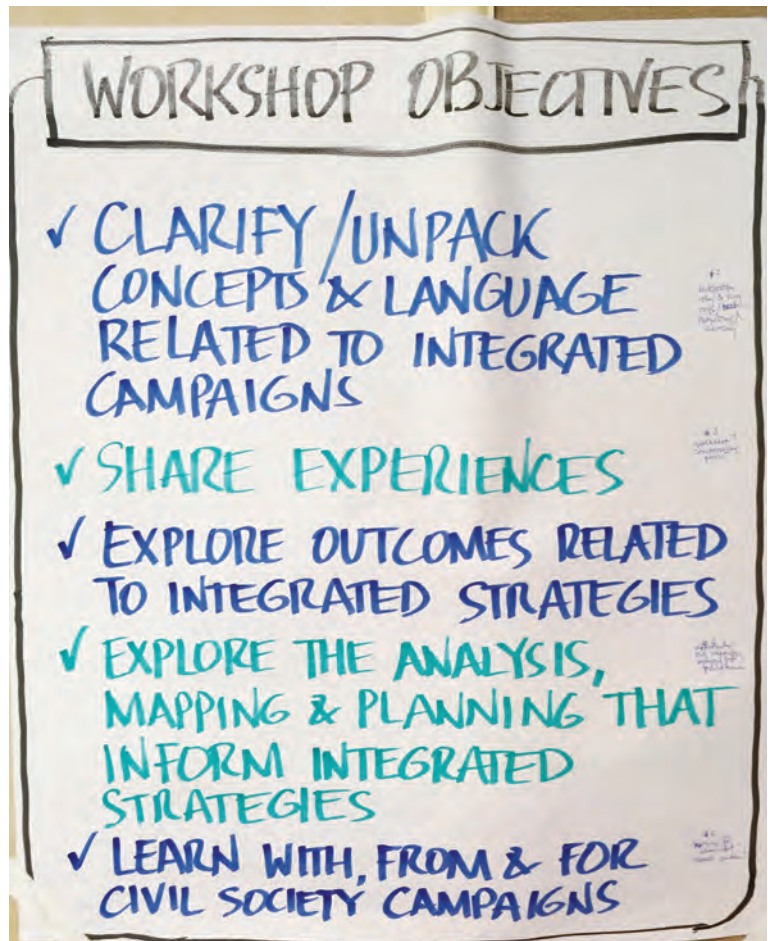 WORKSHOP OBJECTIVES
✓ CLARIFY/UNPACK
CONCEPTS & LANGUAGE
RELATED TO INTEGRATED
CAMPAIGNS
✓ SHARE EXPERIENCES
✓ EXPLORE OUTCOMES RELATED
TO INTEGRATED STRATEGIES
✓ EXPLORE THE ANALYSIS,
MAPPING & PLANNING THAT
INFORM INTEGRATED
STRATEGIES
✓ LEARN WITH, FROM & FOR
CIVIL SOCIETY CAMPAIGNS